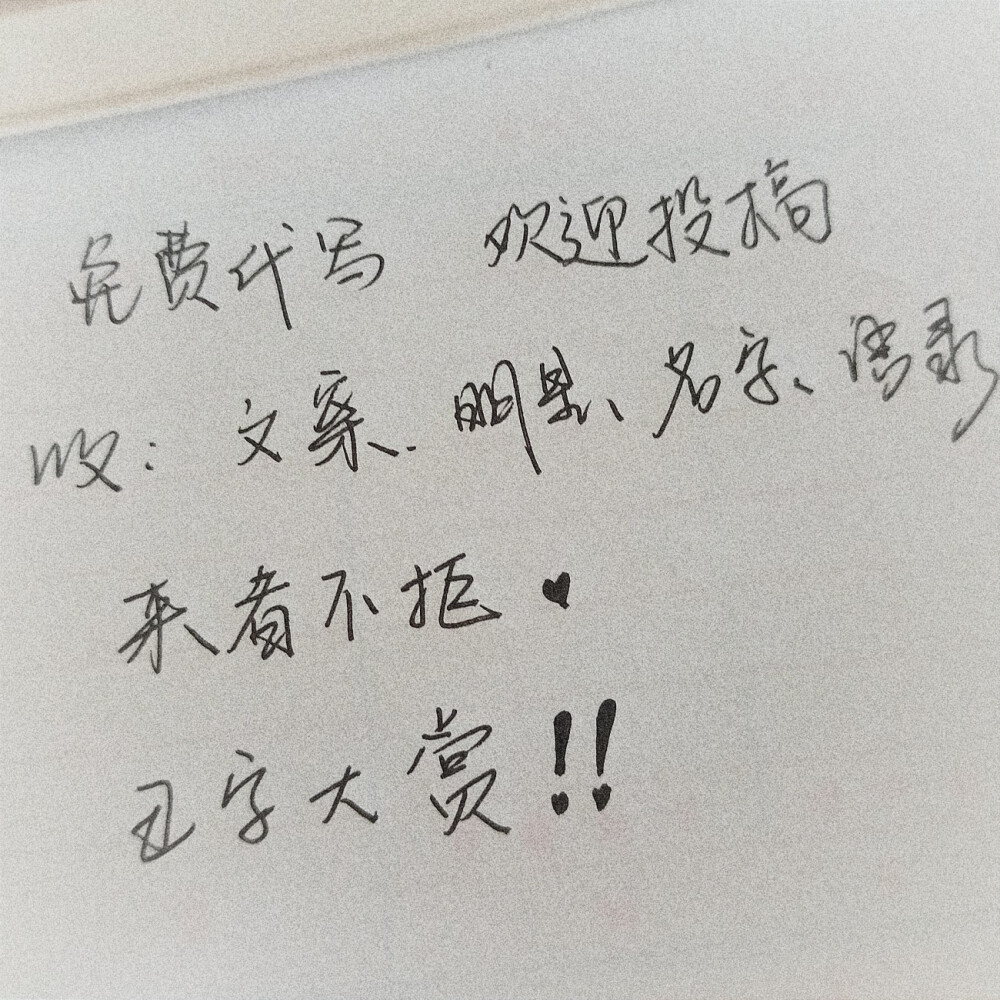 免费代写 欢迎投稿
收：文案、明星、名字、语录
来者不拒♥
丑字大赏!!